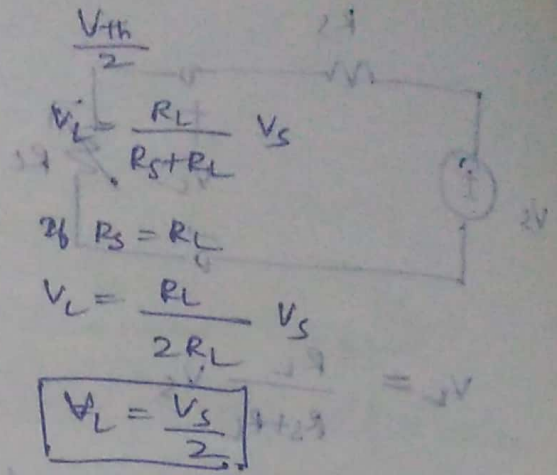 Vth/2
VL = RL/(RS+RL) VS
If RS = RL
VL = RL/(2RL) VS
VL = VS/2